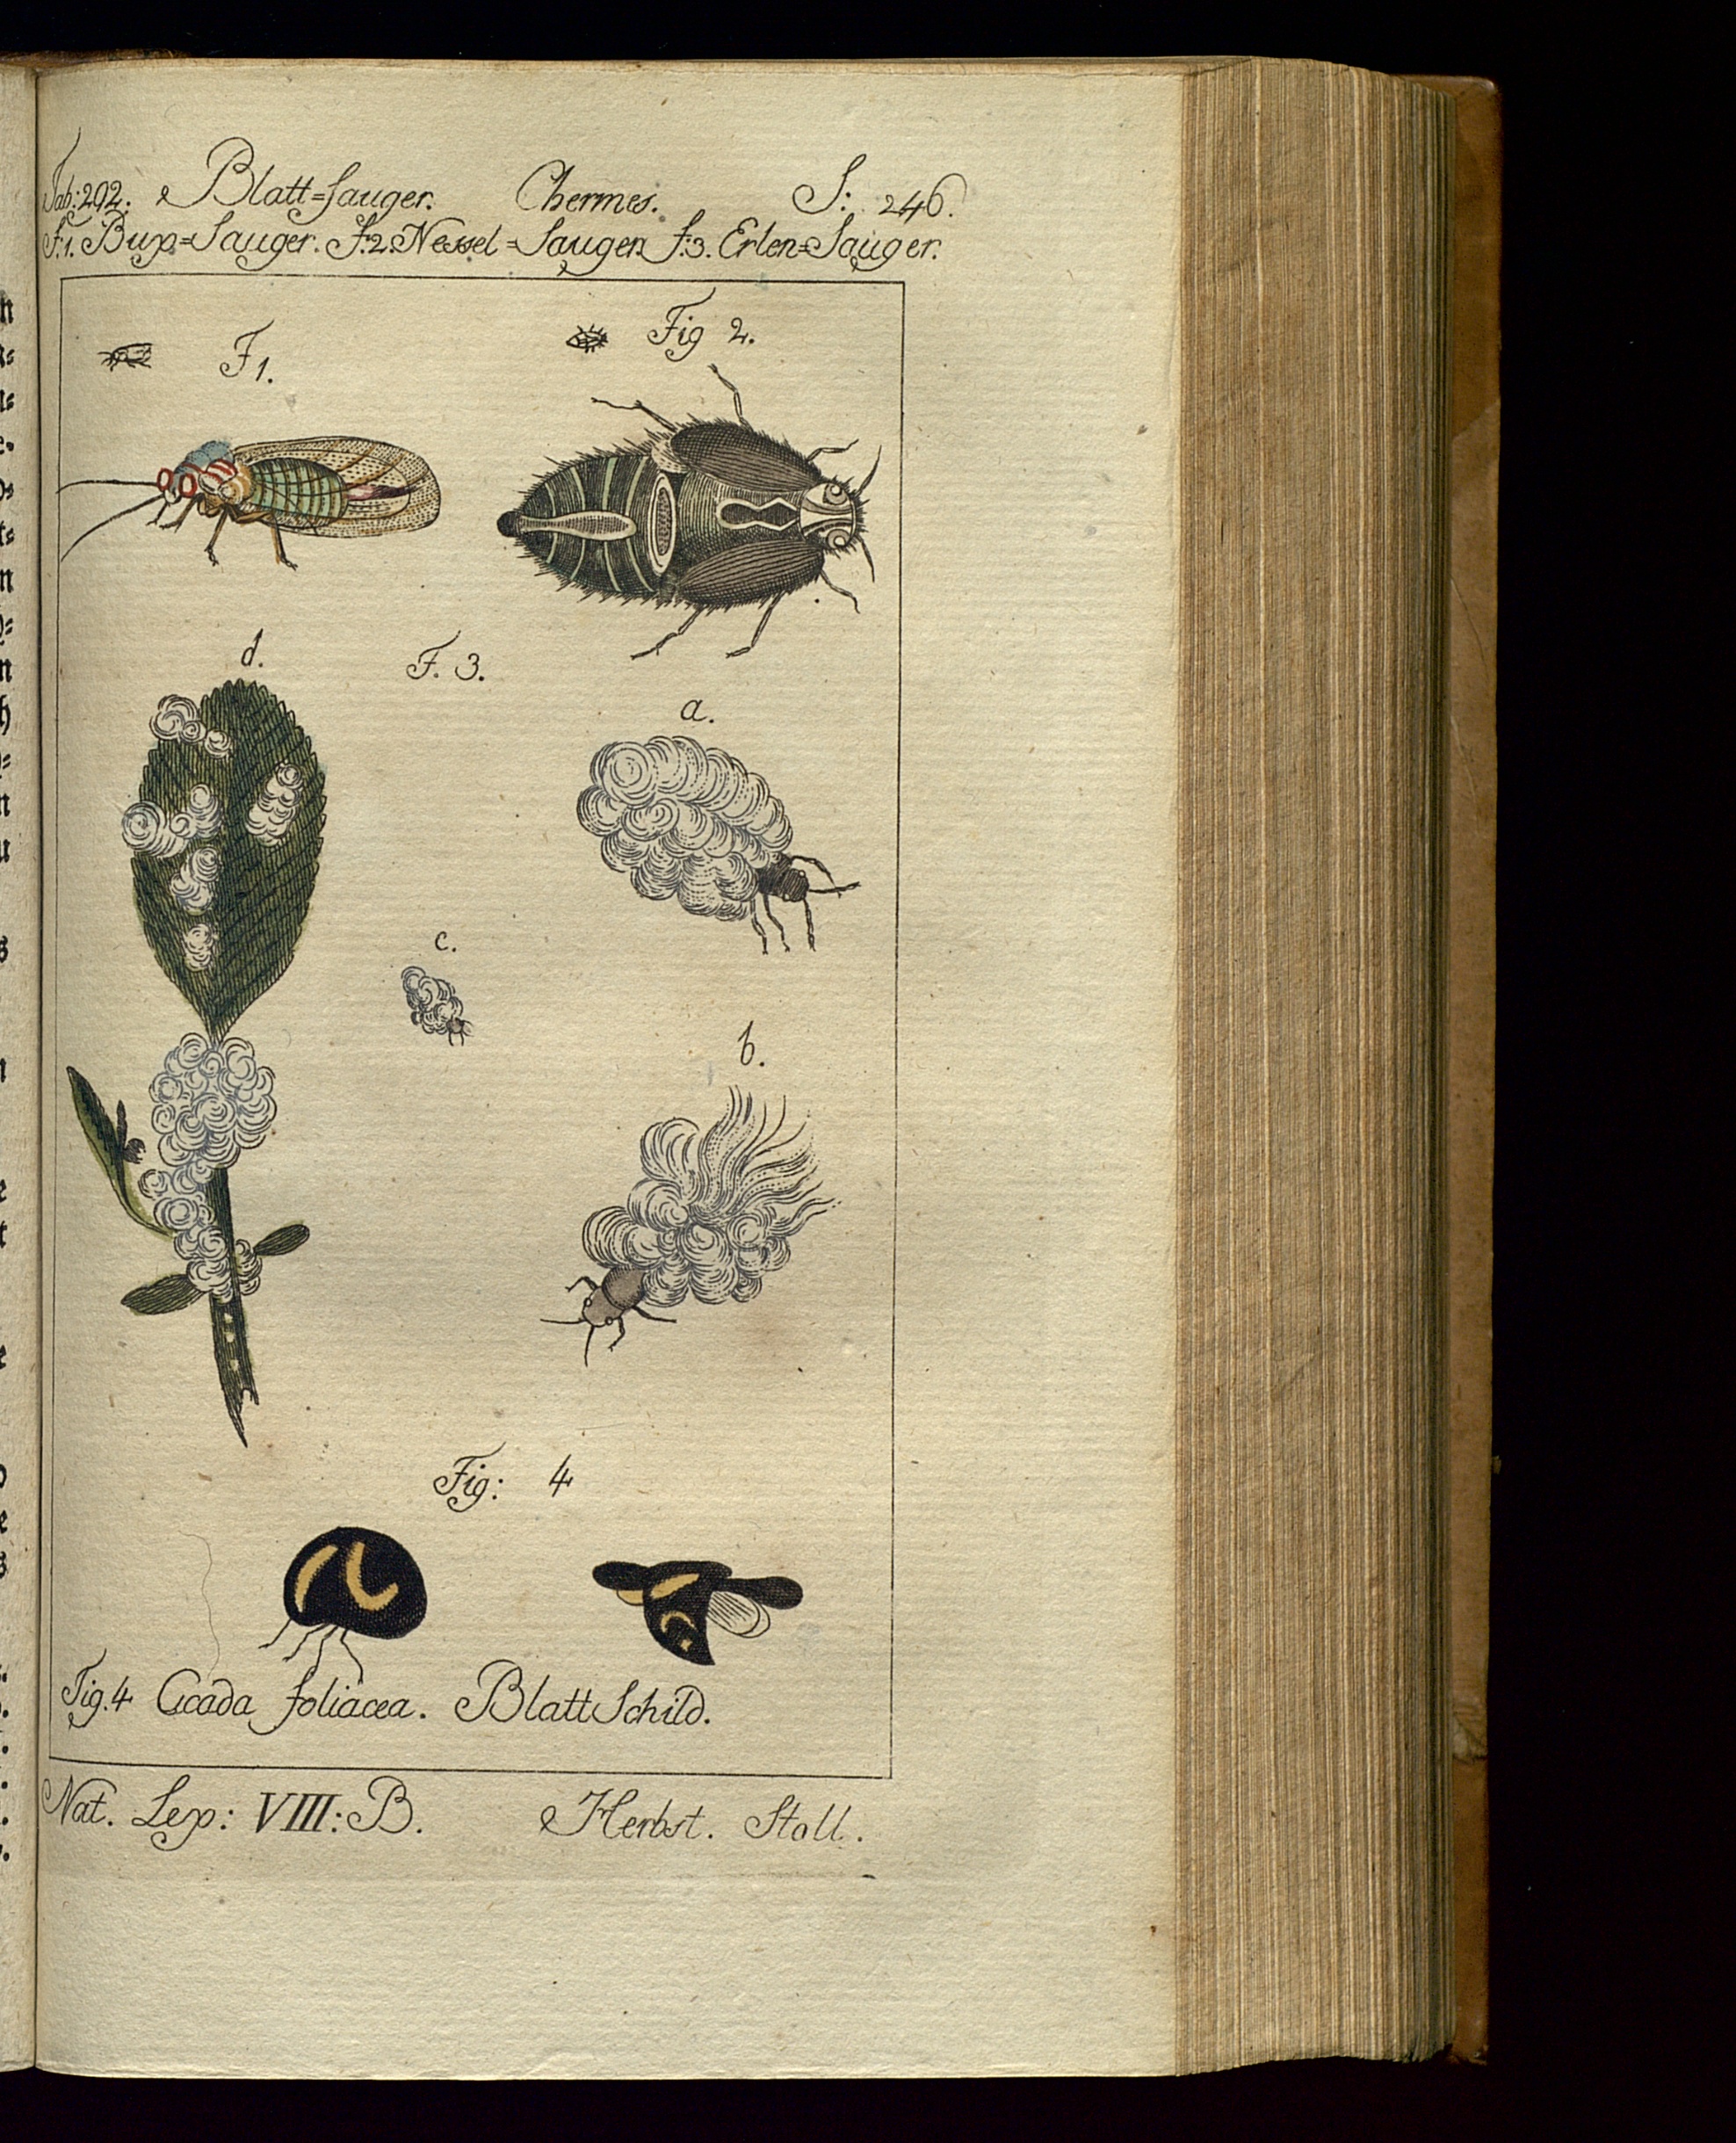 Tab: 292. Blatt=Sauger. Chermes. S: 246.
F.1. Bux=Sauger. F.2. Nessel=Sauger. f.3. Erlen=Sauger.
F 1.
Fig 2.
d.
F. 3.
a.
c.
b.
Fig: 4
Fig. 4 Cicada foliacea. Blatt Schild.
Nat. Lex: VIII: B. Herbst. Stoll.